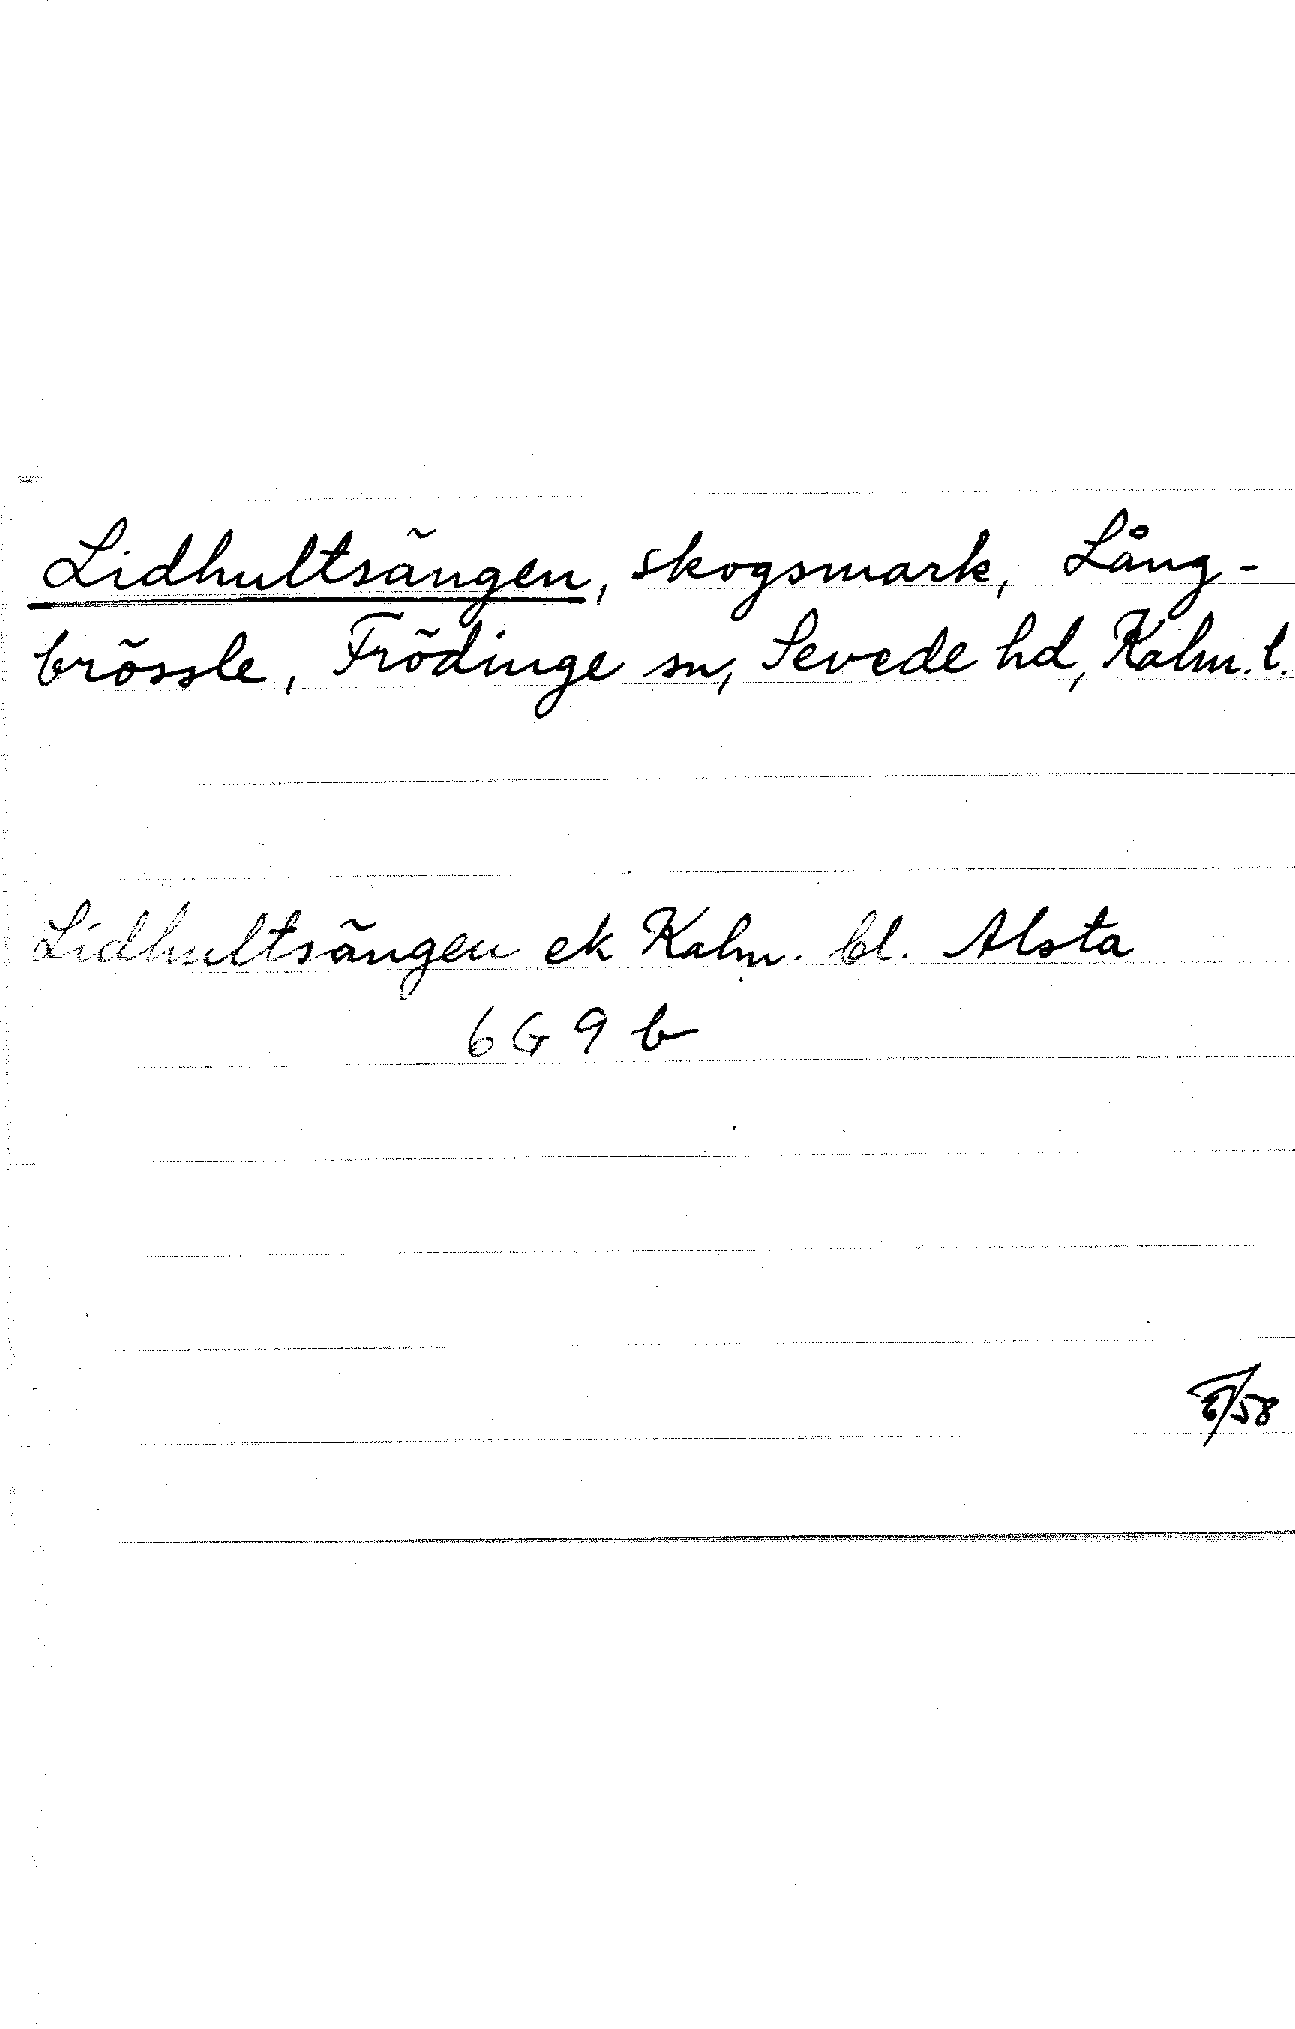 Lidhultsängen, skogsmark, Lång-
brössle, Frödinge sn, Sevede hd, Kalm. l.
Lidhultsängen ek Kalm. bl. Alsta
6 G 9 b
/58